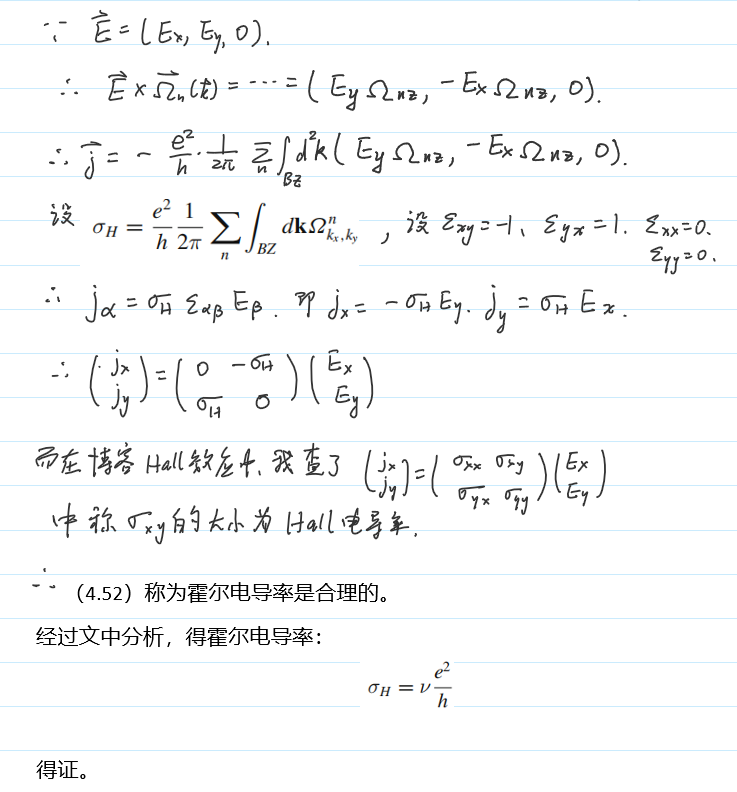 ∵ E⃗ = (Ex, Ey, 0).
∴ E⃗ × Ω⃗n(k) = ⋯ = (Ey Ωnz, −Ex Ωnz, 0).
∴ j⃗ = − e²/h · 1/2π Σn ∫BZ d²k (Ey Ωnz, −Ex Ωnz, 0).
设 σH = e²/h 1/2π Σn ∫BZ dk Ωⁿkx,ky , 设 εxy = −1、 εyx = 1. εxx = 0.
εyy = 0.
∴ jα = σH εαβ Eβ. 即 jx = −σH Ey. jy = σH Ex.
∴ (jx jy) = (0 −σH σH 0)(Ex Ey)
而在博客Hall效应中、我查了 (jx jy) = (σxx σxy σyx σyy)(Ex Ey)
中称 σxy 的大小为 Hall 电导率.
∴ （4.52）称为霍尔电导率是合理的。
经过文中分析，得霍尔电导率：
σH = ν e²/h
得证。